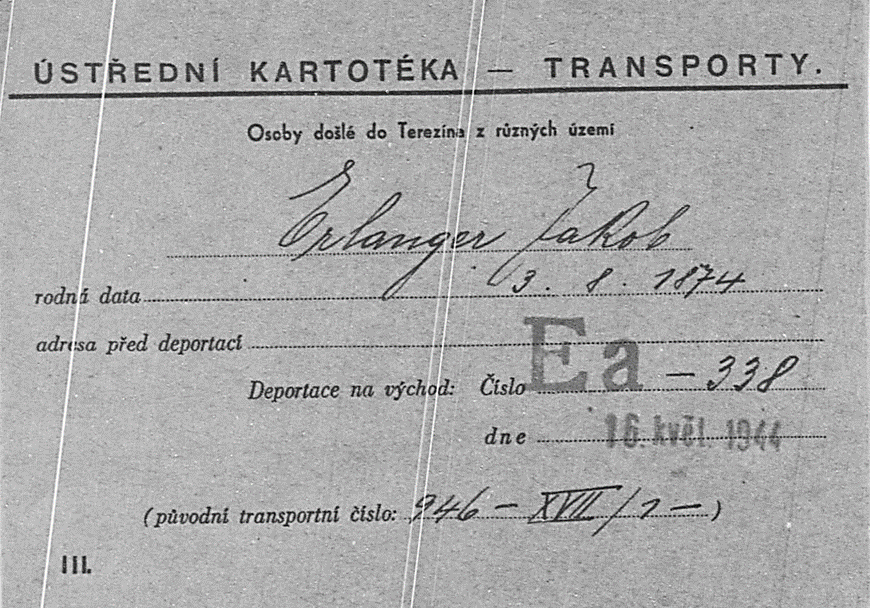 ÚSTŘEDNÍ KARTOTÉKA — TRANSPORTY.
Osoby došlé do Terezína z různých území
Erlanger Jakob
rodná data 3. 8. 1874
adresa před deportací
Deportace na východ: Číslo Ea — 338
dne 16. květ. 1944
(původní transportní číslo: 946 — XVII/1 —)
III.